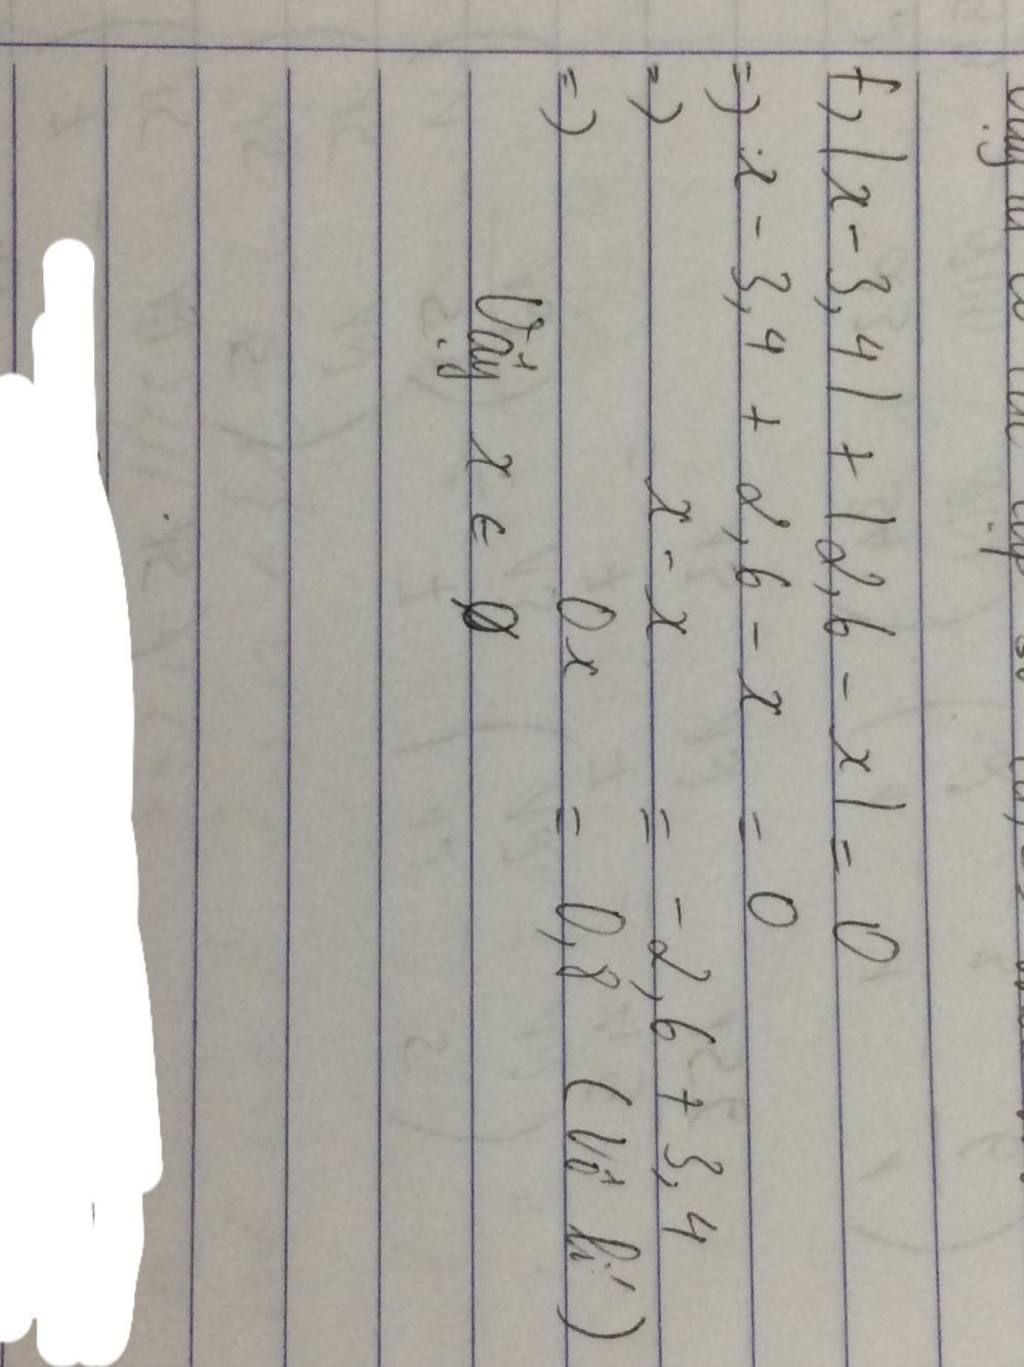 f, |x - 3,4| + |2,6 - x| = 0
=) x - 3,4 + 2,6 - x = 0
=) x - x = -2,6 + 3,4
=) 0x = 0,8 (Vô lí)
Vậy x ∈ ∅